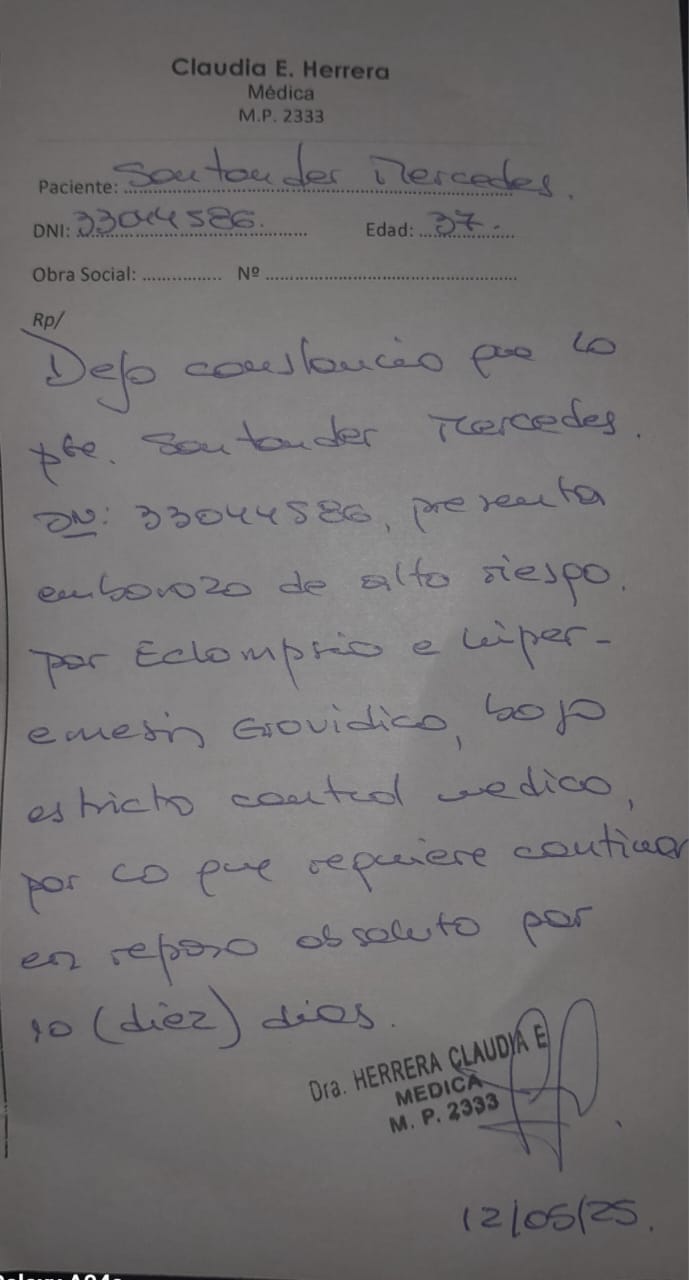 Claudia E. Herrera
Médica
M.P. 2333
Paciente: Santander Mercedes.
DNI: 33044586. Edad: 37.
Obra Social: ............... Nº ...............
Rp/
Dejo constancia que la
pte. Santander Mercedes.
DNI: 33044586, presenta
embarazo de alto riesgo.
por Eclampsia e hiper-
emesis Gravidica, bajo
estricto control medico,
por lo que requiere continuar
en reposo absoluto por
10 (diez) dias.
Dra. HERRERA CLAUDIA E
MEDICA
M. P. 2333
12/05/25.